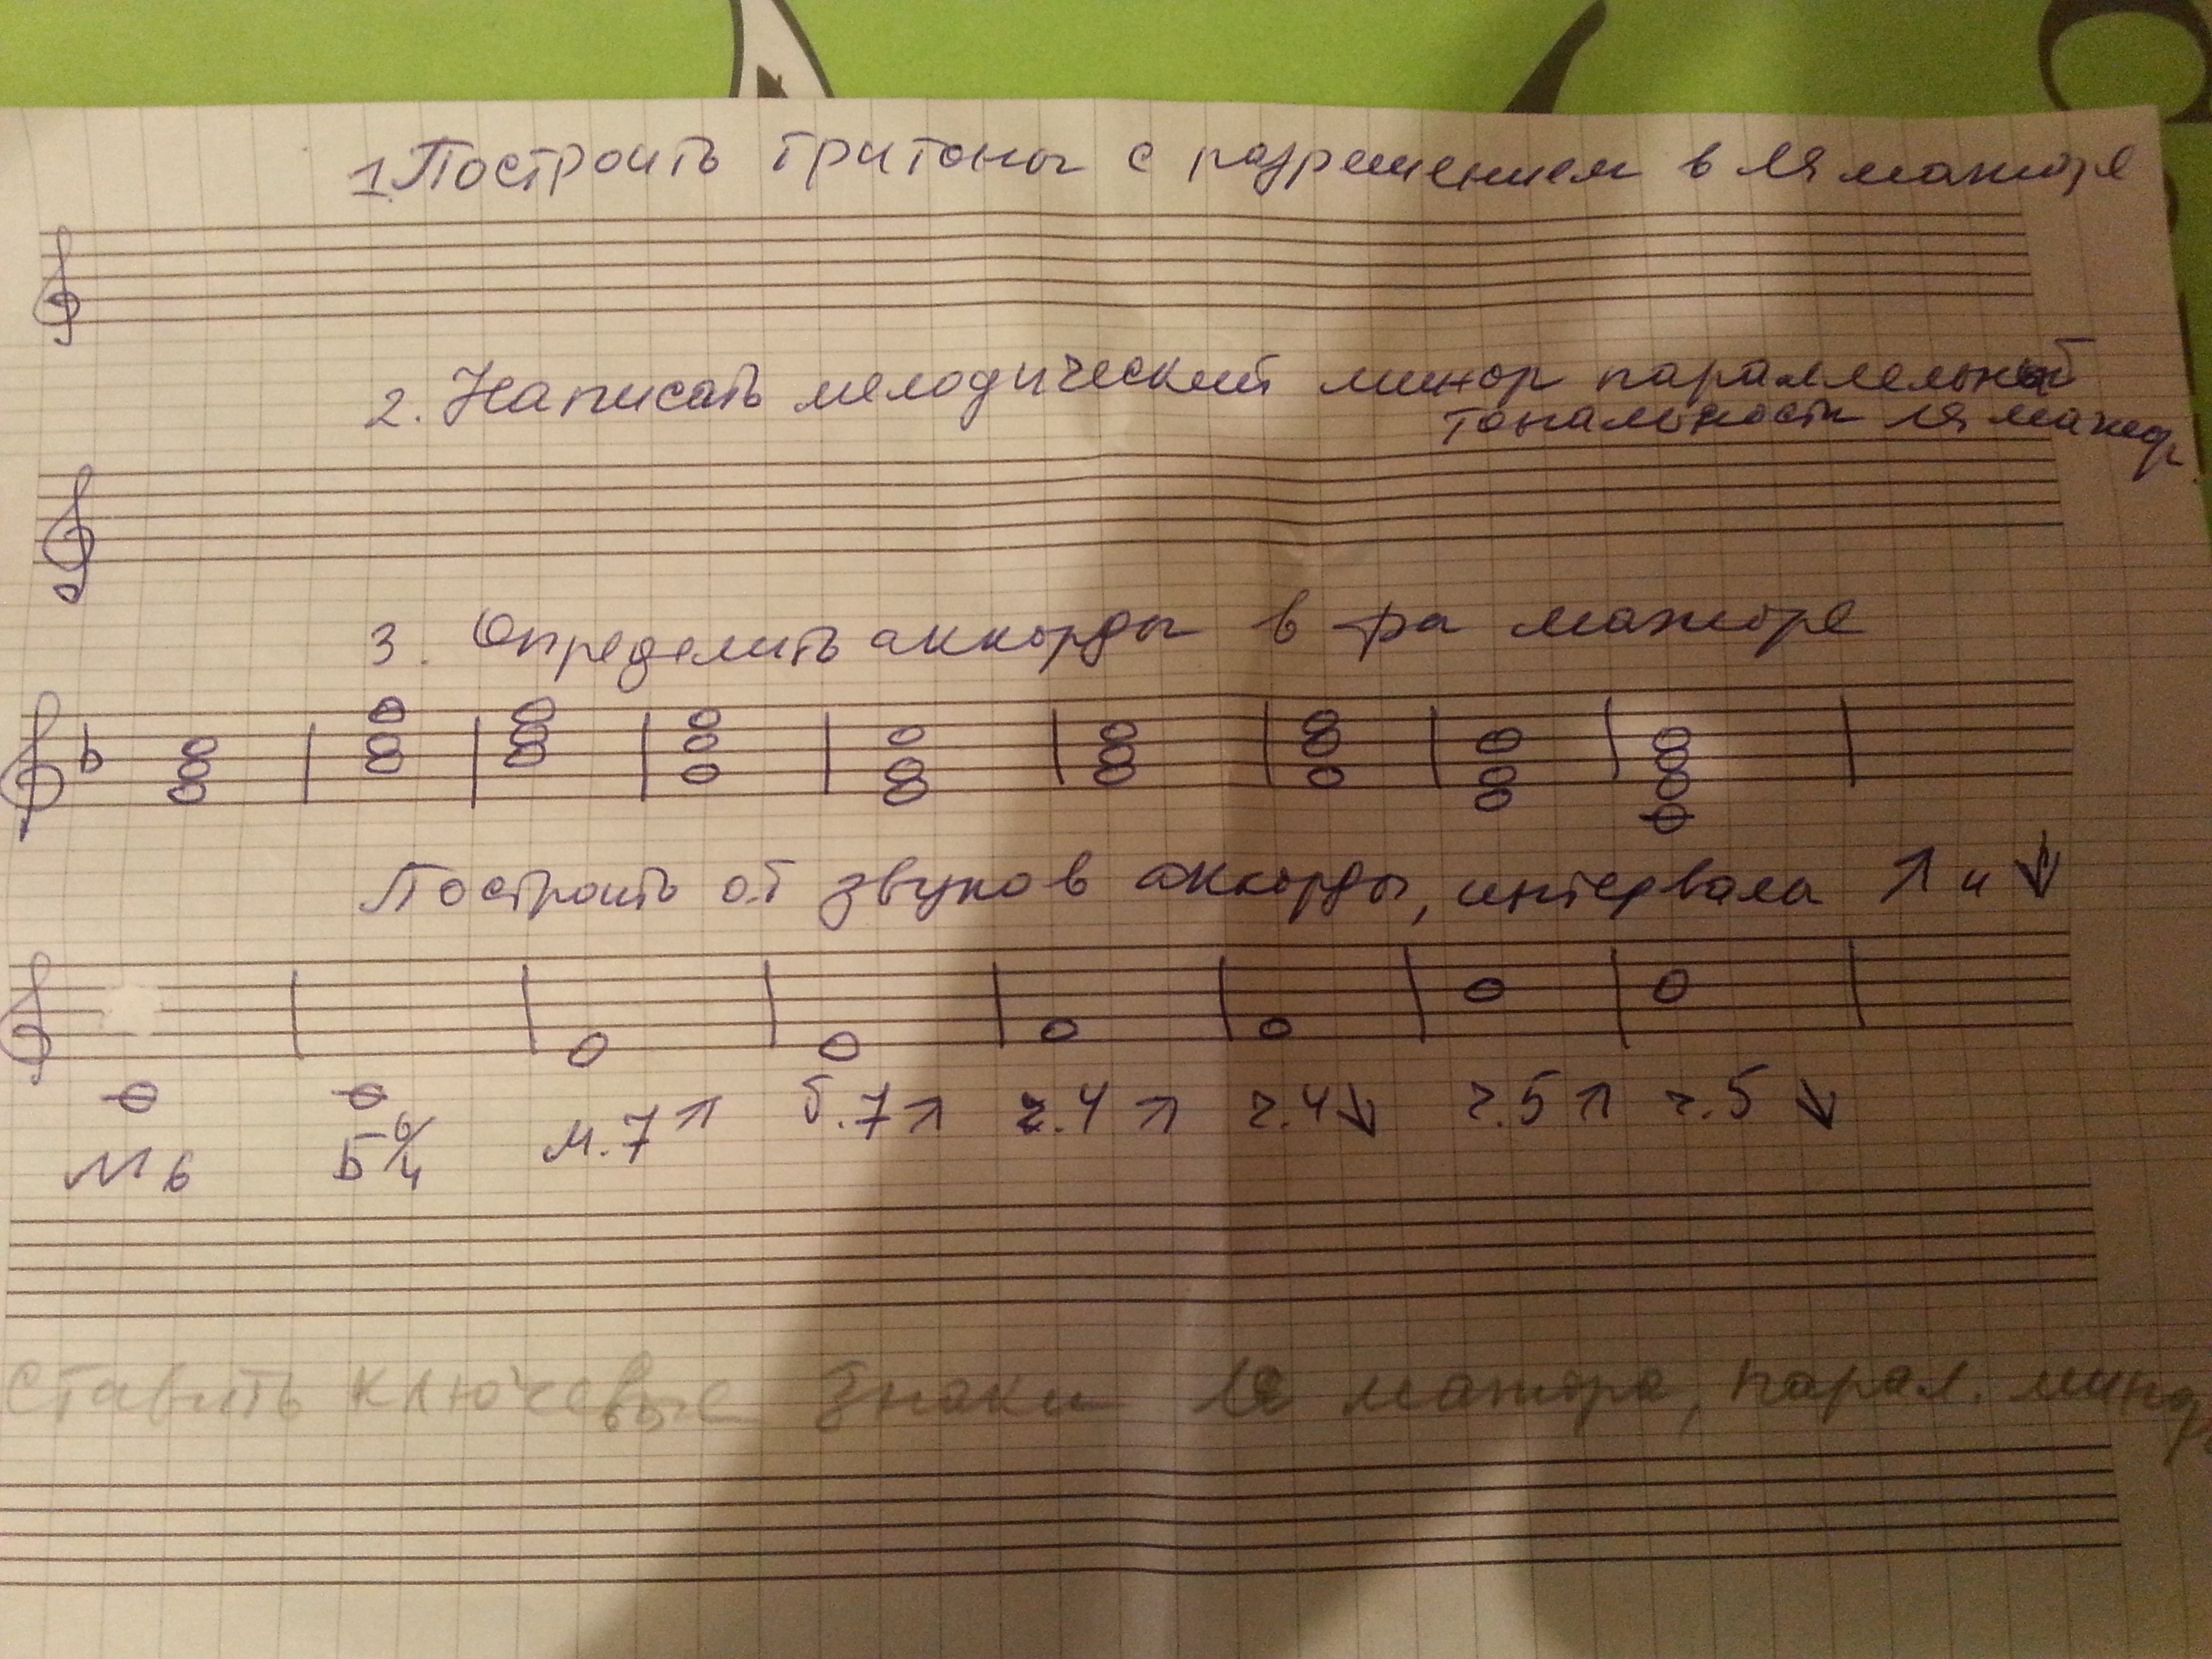 1. Построить тритоны с разрешением в ля мажоре
2. Написать мелодический минор параллельной
тональности ля мажор.
3. Определить аккорды в фа мажоре
Построить от звуков аккорды, интервалы ↑ и ↓
М6 Б6/4 м.7↑ б.7↑ ч.4↑ ч.4↓ ч.5↑ ч.5↓
ставить ключевые знаки ля мажора, парал.